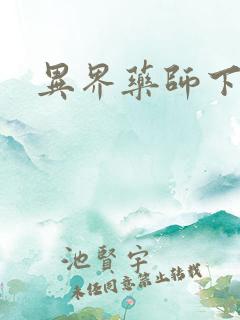 異界藥師下
池賢宇
未經同意禁止轉載